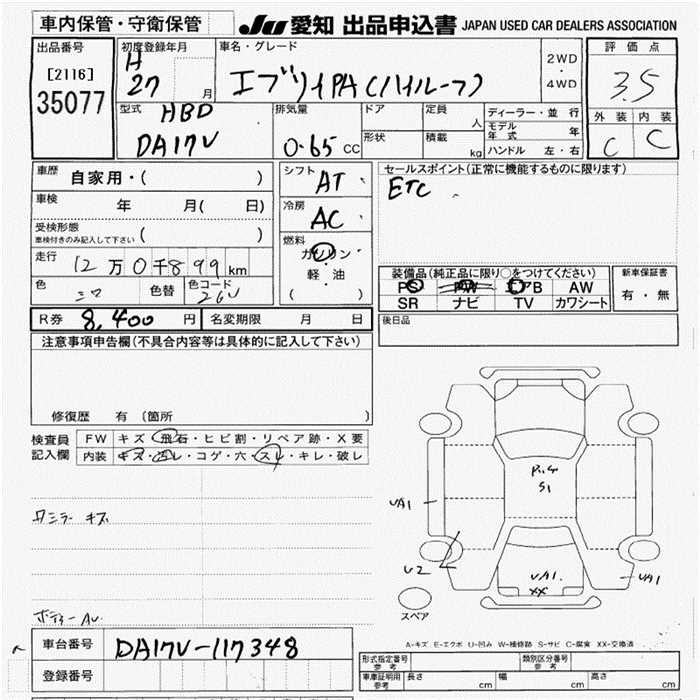 車内保管・守衛保管
JU 愛知 出品申込書 JAPAN USED CAR DEALERS ASSOCIATION
出品番号
[2116]
35077
初度登録年月
H
27 月
車名・グレード
エブリイPA(ハイルーフ)
2WD
・
4WD
評価点
3.5
外装 内装
C C
型式 HBD
DA17V
排気量
0.65 CC
ドア
形状
定員
人
積載
kg
ディーラー・並行
モデル年式 年
ハンドル 左・右
車歴 自家用・( )
車検 年 月( 日)
受検形態
車検付きのみ記入して下さい ( )
走行 12万0千899 km
色 色替 色コード
26U
シフト
AT
冷房
AC
燃料
ガソリン
・
軽・油
( )
セールスポイント(正常に機能するものに限ります)
ETC
装備品(純正品に限り○をつけてください)
PS PW エアB AW
SR ナビ TV カワシート
新車保証書
有・無
R券 8,400 円 名変期限 月 日
後日品
注意事項申告欄(不具合内容等は具体的に記入して下さい)
修復歴 有 (箇所 )
検査員
記入欄
FW キズ・飛石・ヒビ割・リペア跡・X要
内装 キズ・汚レ・コゲ・穴・スレ・キレ・破レ
キズ
S1
UA1
U2
UA1
XX
UA1
スペア
A-キズ E-エクボ U-凹み W-補修跡 S-サビ C-腐食 XX-交換済
車台番号 DA17V-117348
登録番号
形式指定番号
参考
類別区分番号
参考
車庫証明用
参考
長さ cm 幅 cm 高さ cm